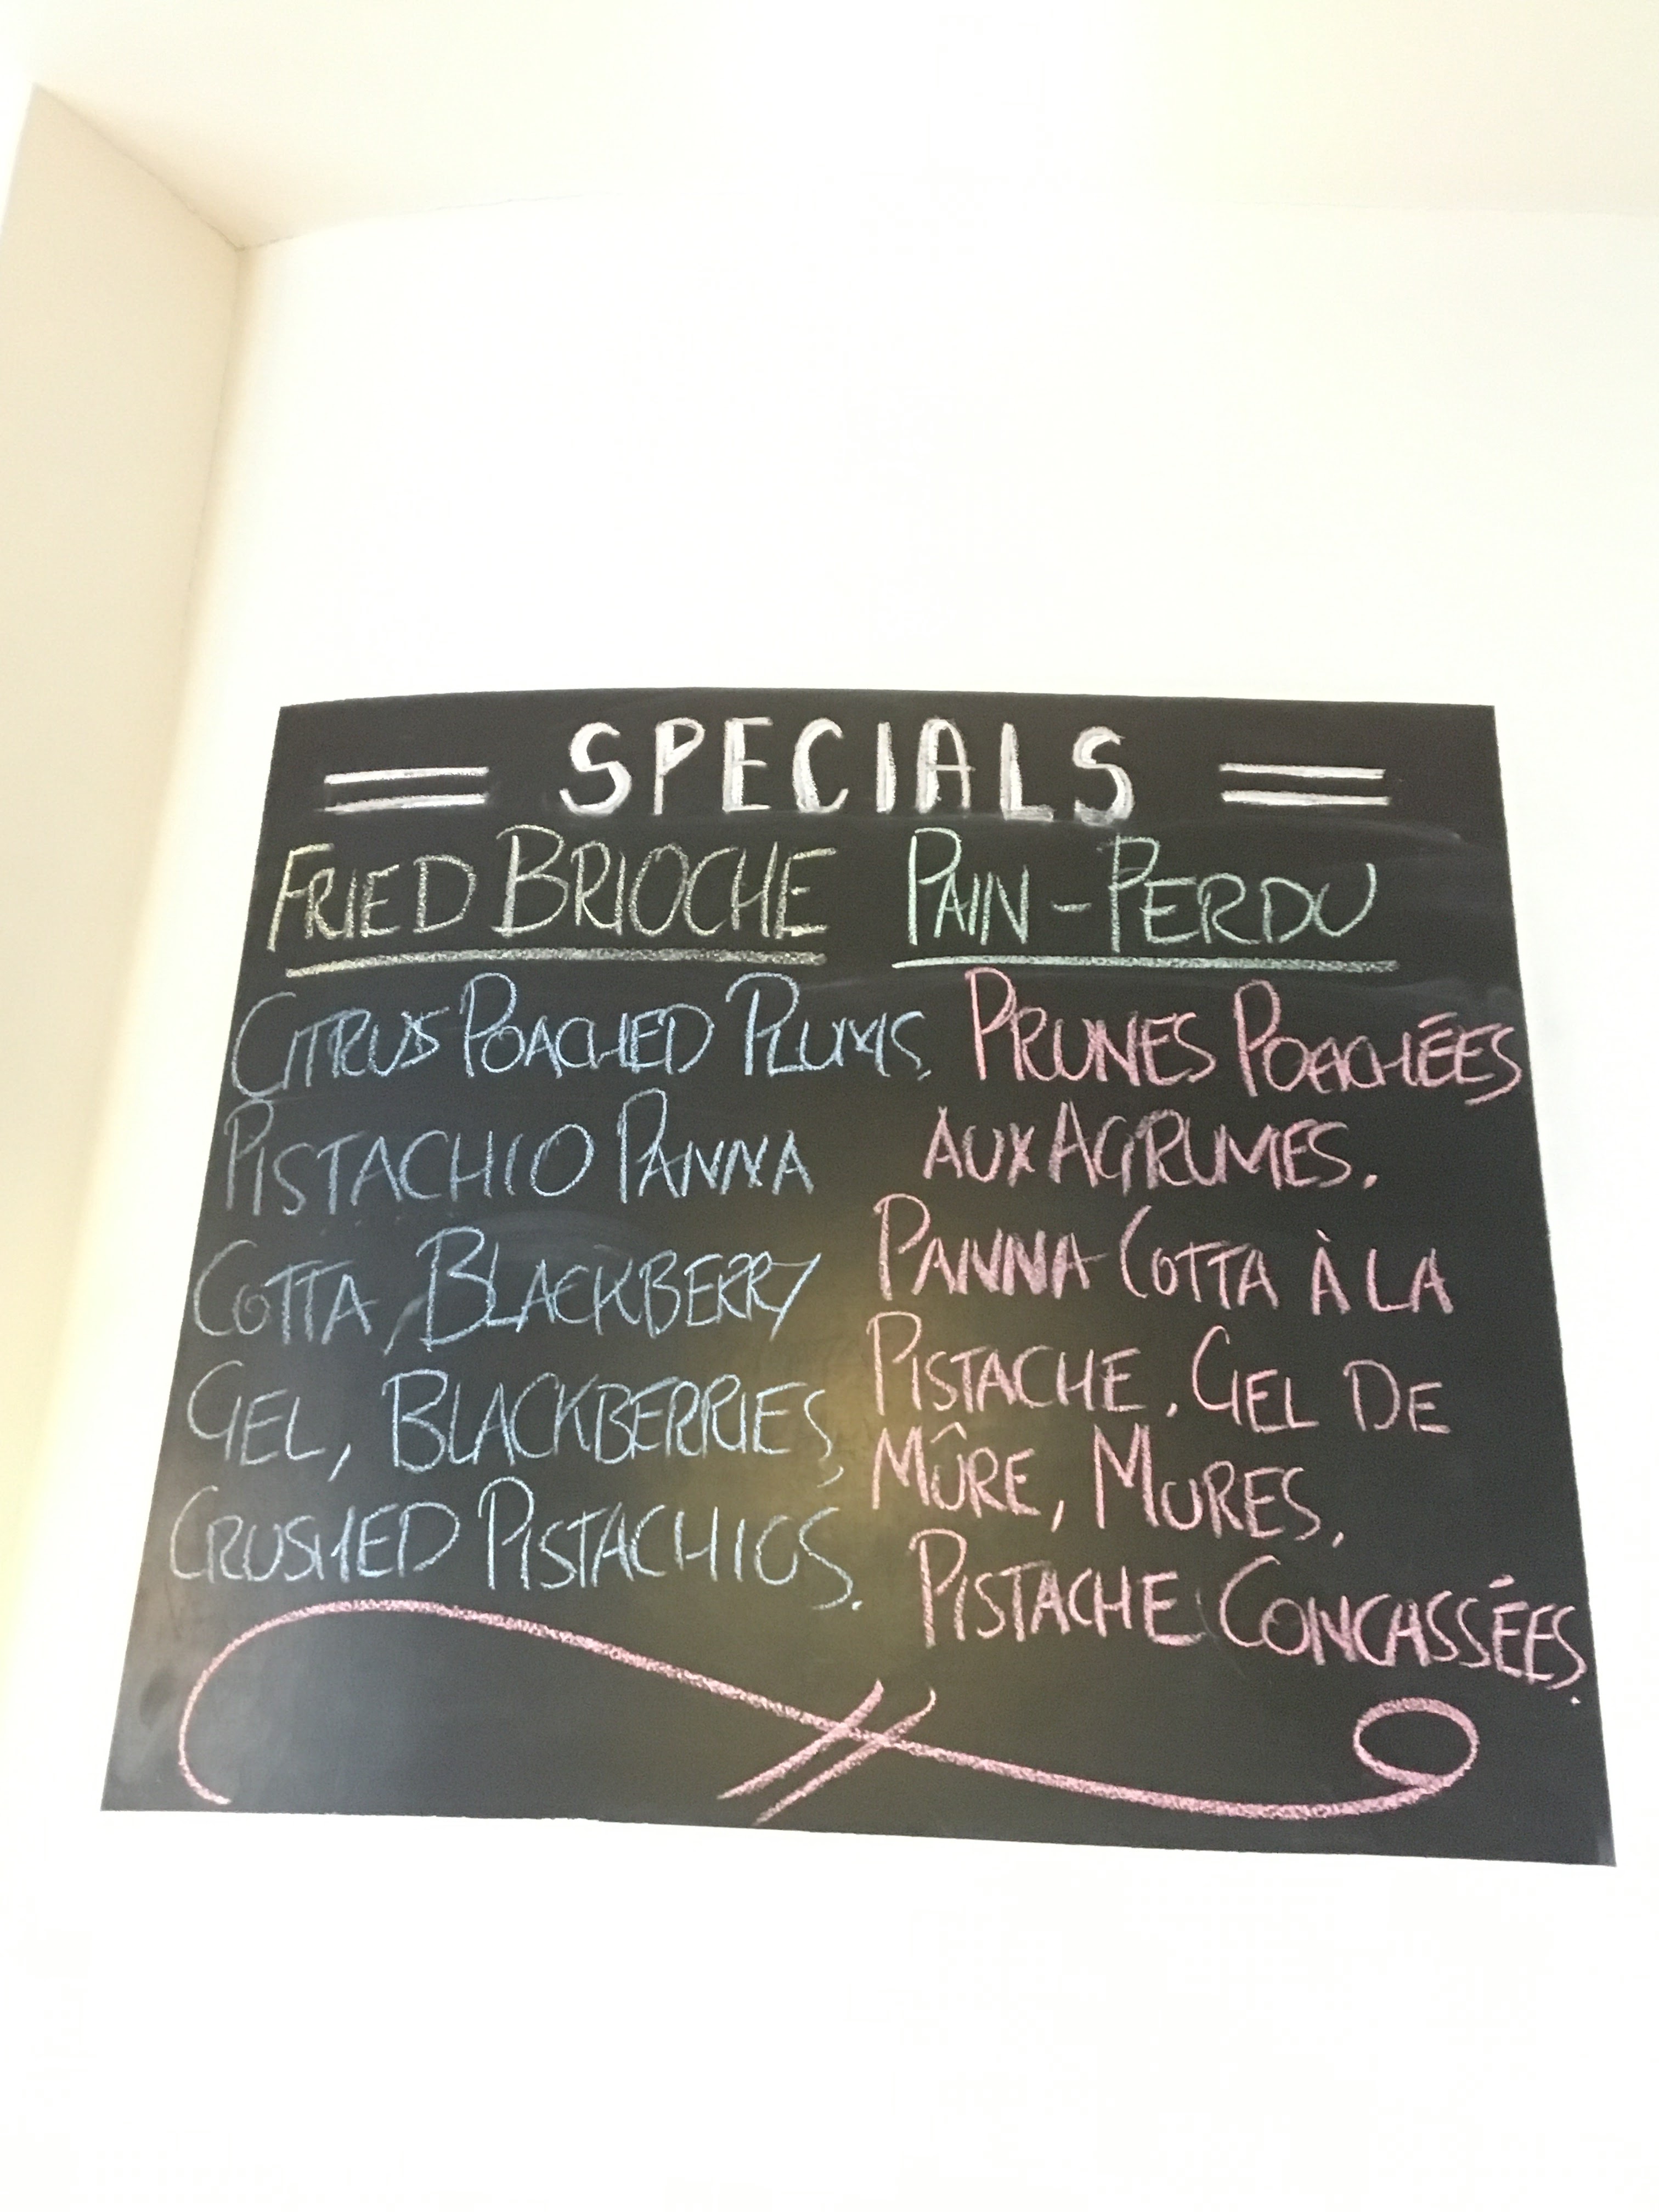 SPECIALS
FRIED BRIOCHE
CITRUS POACHED PLUMS,
PISTACHIO PANNA
COTTA, BLACKBERRY
GEL, BLACKBERRIES,
CRUSHED PISTACHIOS.
PAIN-PERDU
PRUNES POACHÉES
AUX AGRUMES,
PANNA COTTA À LA
PISTACHE, GEL DE
MÛRE, MURES,
PISTACHE CONCASSÉES.